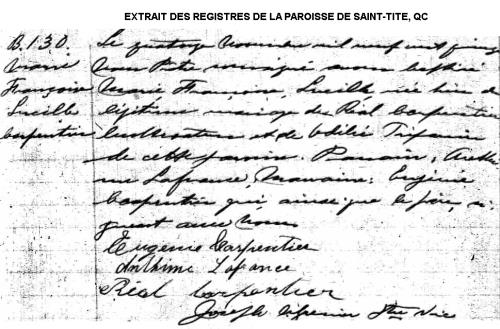 EXTRAIT DES REGISTRES DE LA PAROISSE DE SAINT-TITE, QC
B.130.
Marie
Françoise
Lucille
Carpentier
Le quatorze Novembre mil neuf cent
Nous Ptre soussigné avons baptisé
Marie Françoise Lucille née hier du
légitime mariage de Réal Carpentier
cultivateur et de
de cette paroisse. Parrain;
Lafrance, Marraine; Eugénie
Carpentier qui ainsi que le père, si-
gnent avec Nous
Eugenie Carpentier
Anthime Lafrance
Réal Carpentier
Joseph Ptre Vic